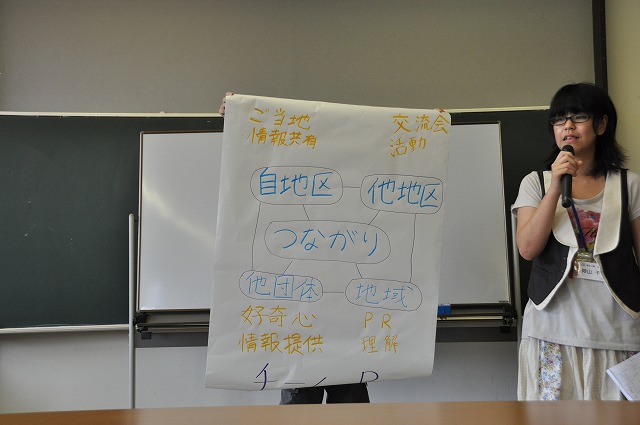 ご当地
情報共有
交流会
活動
自地区
他地区
つながり
他団体
地域
好奇心
情報提供
PR
理解